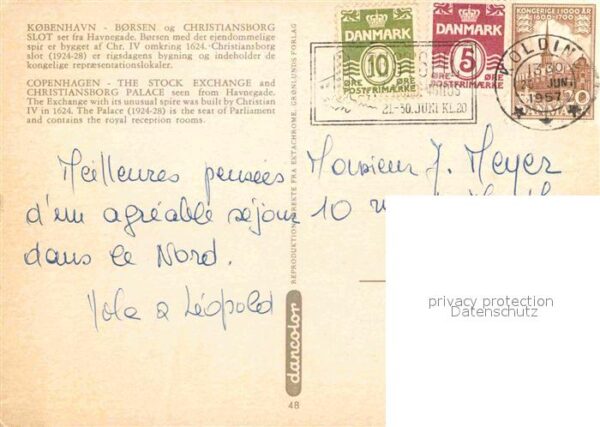 KØBENHAVN - BØRSEN og CHRISTIANSBORG
SLOT set fra Havnegade. Børsen med det ejendommelige
spir er bygget af Chr. IV omkring 1624. Christiansborg
slot (1924-28) er rigsdagens bygning og indeholder de
kongelige repræsentationslokaler.
COPENHAGEN - THE STOCK EXCHANGE and
CHRISTIANSBORG PALACE seen from Havnegade.
The Exchange with its unusual spire was built by Christian
IV in 1624. The Palace (1924-28) is the seat of Parliament
and contains the royal reception rooms.
Meilleures pensées
d'un agréable séjour
dans le Nord.
Léopold
REPRODUKTION DIREKTE FRA EKTACHROME, GRØNLUNDS FORLAG
dancolor
48
DANMARK
10
ØRE ØRE
POSTFRIMÆRKE
DANMARK
5
ØRE ØRE
POSTFRIMÆRKE
KONGERIGE I 1000 ÅR
1600-1700
21-30. JUNI KL. 20
KOLDING
JUNI
1957
Monsieur J. Meyer
10
privacy protection
Datenschutz